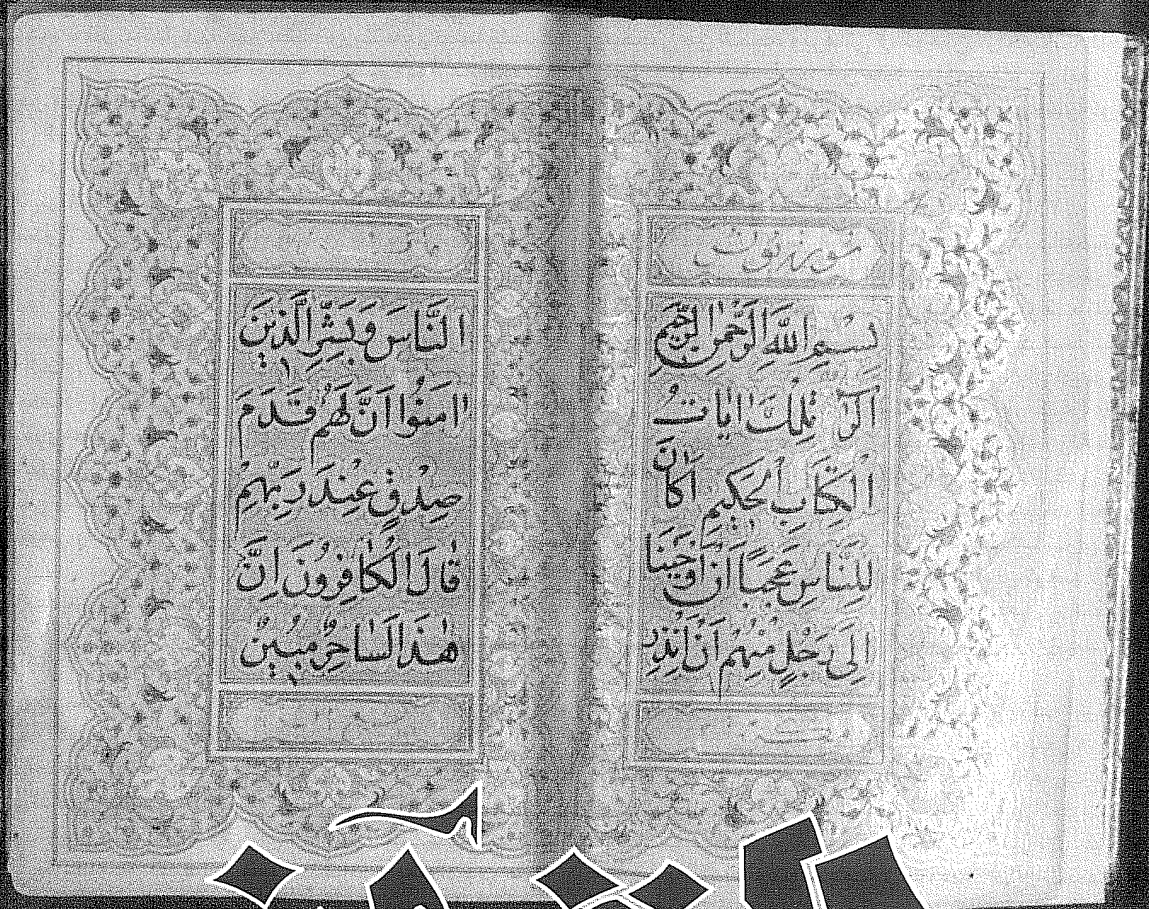 بِسْمِ اللَّهِ الرَّحْمٰنِ الرَّحِيمِ
الٓرٰ تِلْكَ اٰيَاتُ
الْكِتَابِ الْحَكِيمِ اَكَانَ
لِلنَّاسِ عَجَبًا اَنْ اَوْحَيْنَا
اِلَى رَجُلٍ مِنْهُمْ اَنْ اَنْذِرِ
النَّاسَ وَبَشِّرِ الَّذِينَ
اٰمَنُوا اَنَّ لَهُمْ قَدَمَ
صِدْقٍ عِنْدَ رَبِّهِمْ
قَالَ الْكَافِرُونَ اِنَّ
هٰذَا لَسَاحِرٌ مُبِينٌ